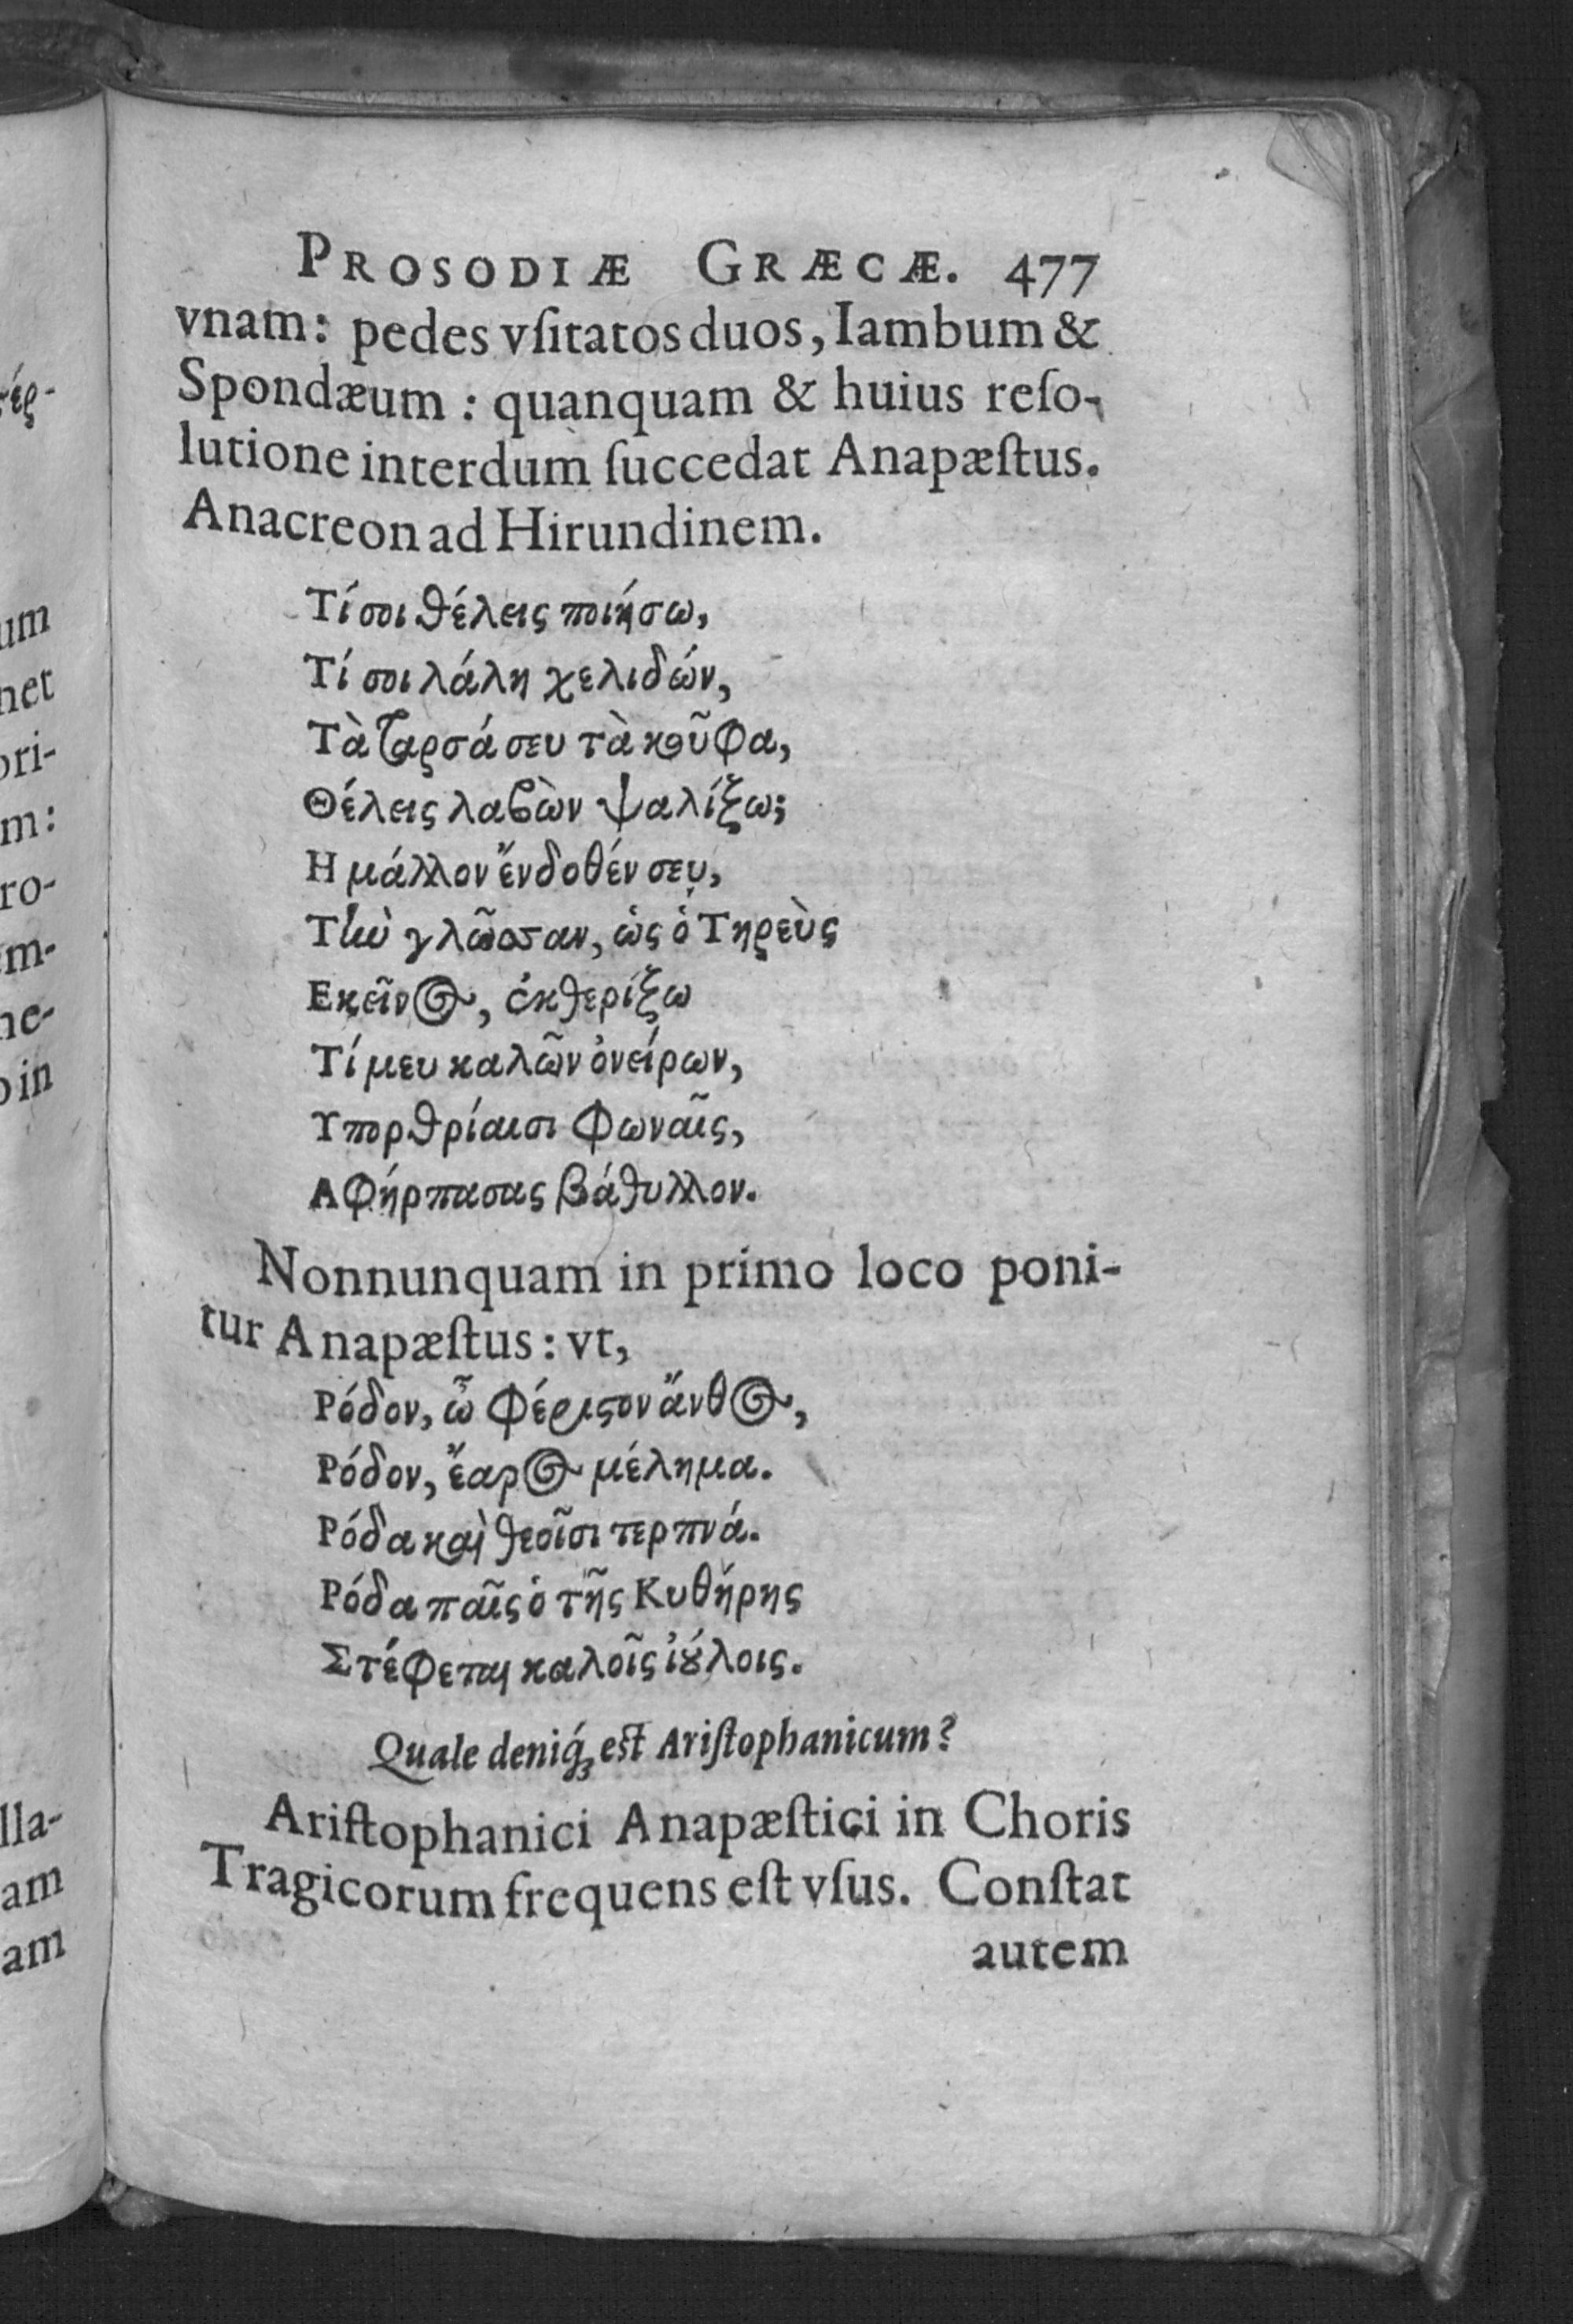 PROSODIÆ GRÆCÆ. 477
vnam: pedes vſitatos duos, Iambum &
Spondæum: quanquam & huius reſo-
lutione interdum ſuccedat Anapæſtus.
Anacreon ad Hirundinem.
Τί σοι θέλεις ποιήσω,
Τί σοι λάλη χελιδών,
Τὰ ταρσά σευ τὰ κοῦφα,
Θέλεις λαβὼν ψαλίξω;
Η μάλλον ἔνδοθέν σευ,
Τὴν γλῶσσαν, ὡς ὁ Τηρεὺς
Εκεῖνος, ἐκθερίξω
Τί μευ καλῶν ὀνείρων,
Υπορθρίαισι φωναῖς,
Αφήρπασας βάθυλλον.
Nonnunquam in primo loco poni-
tur Anapæſtus: vt,
Ρόδον, ὦ φέριστον ἄνθος,
Ρόδον, ἔαρος μέλημα.
Ρόδα καὶ θεοῖσι τερπνά.
Ρόδα παῖς ὁ τῆς Κυθήρης
Στέφεται καλοῖς ἰούλοις.
Quale deniq́ꝫ est Ariſtophanicum?
Ariſtophanici Anapæſtici in Choris
Tragicorum frequens eſt vſus. Conſtat
autem